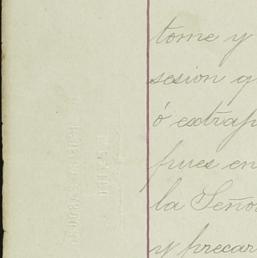 tome y
sesion q
ó extraj
pues en
la Seño
y precar